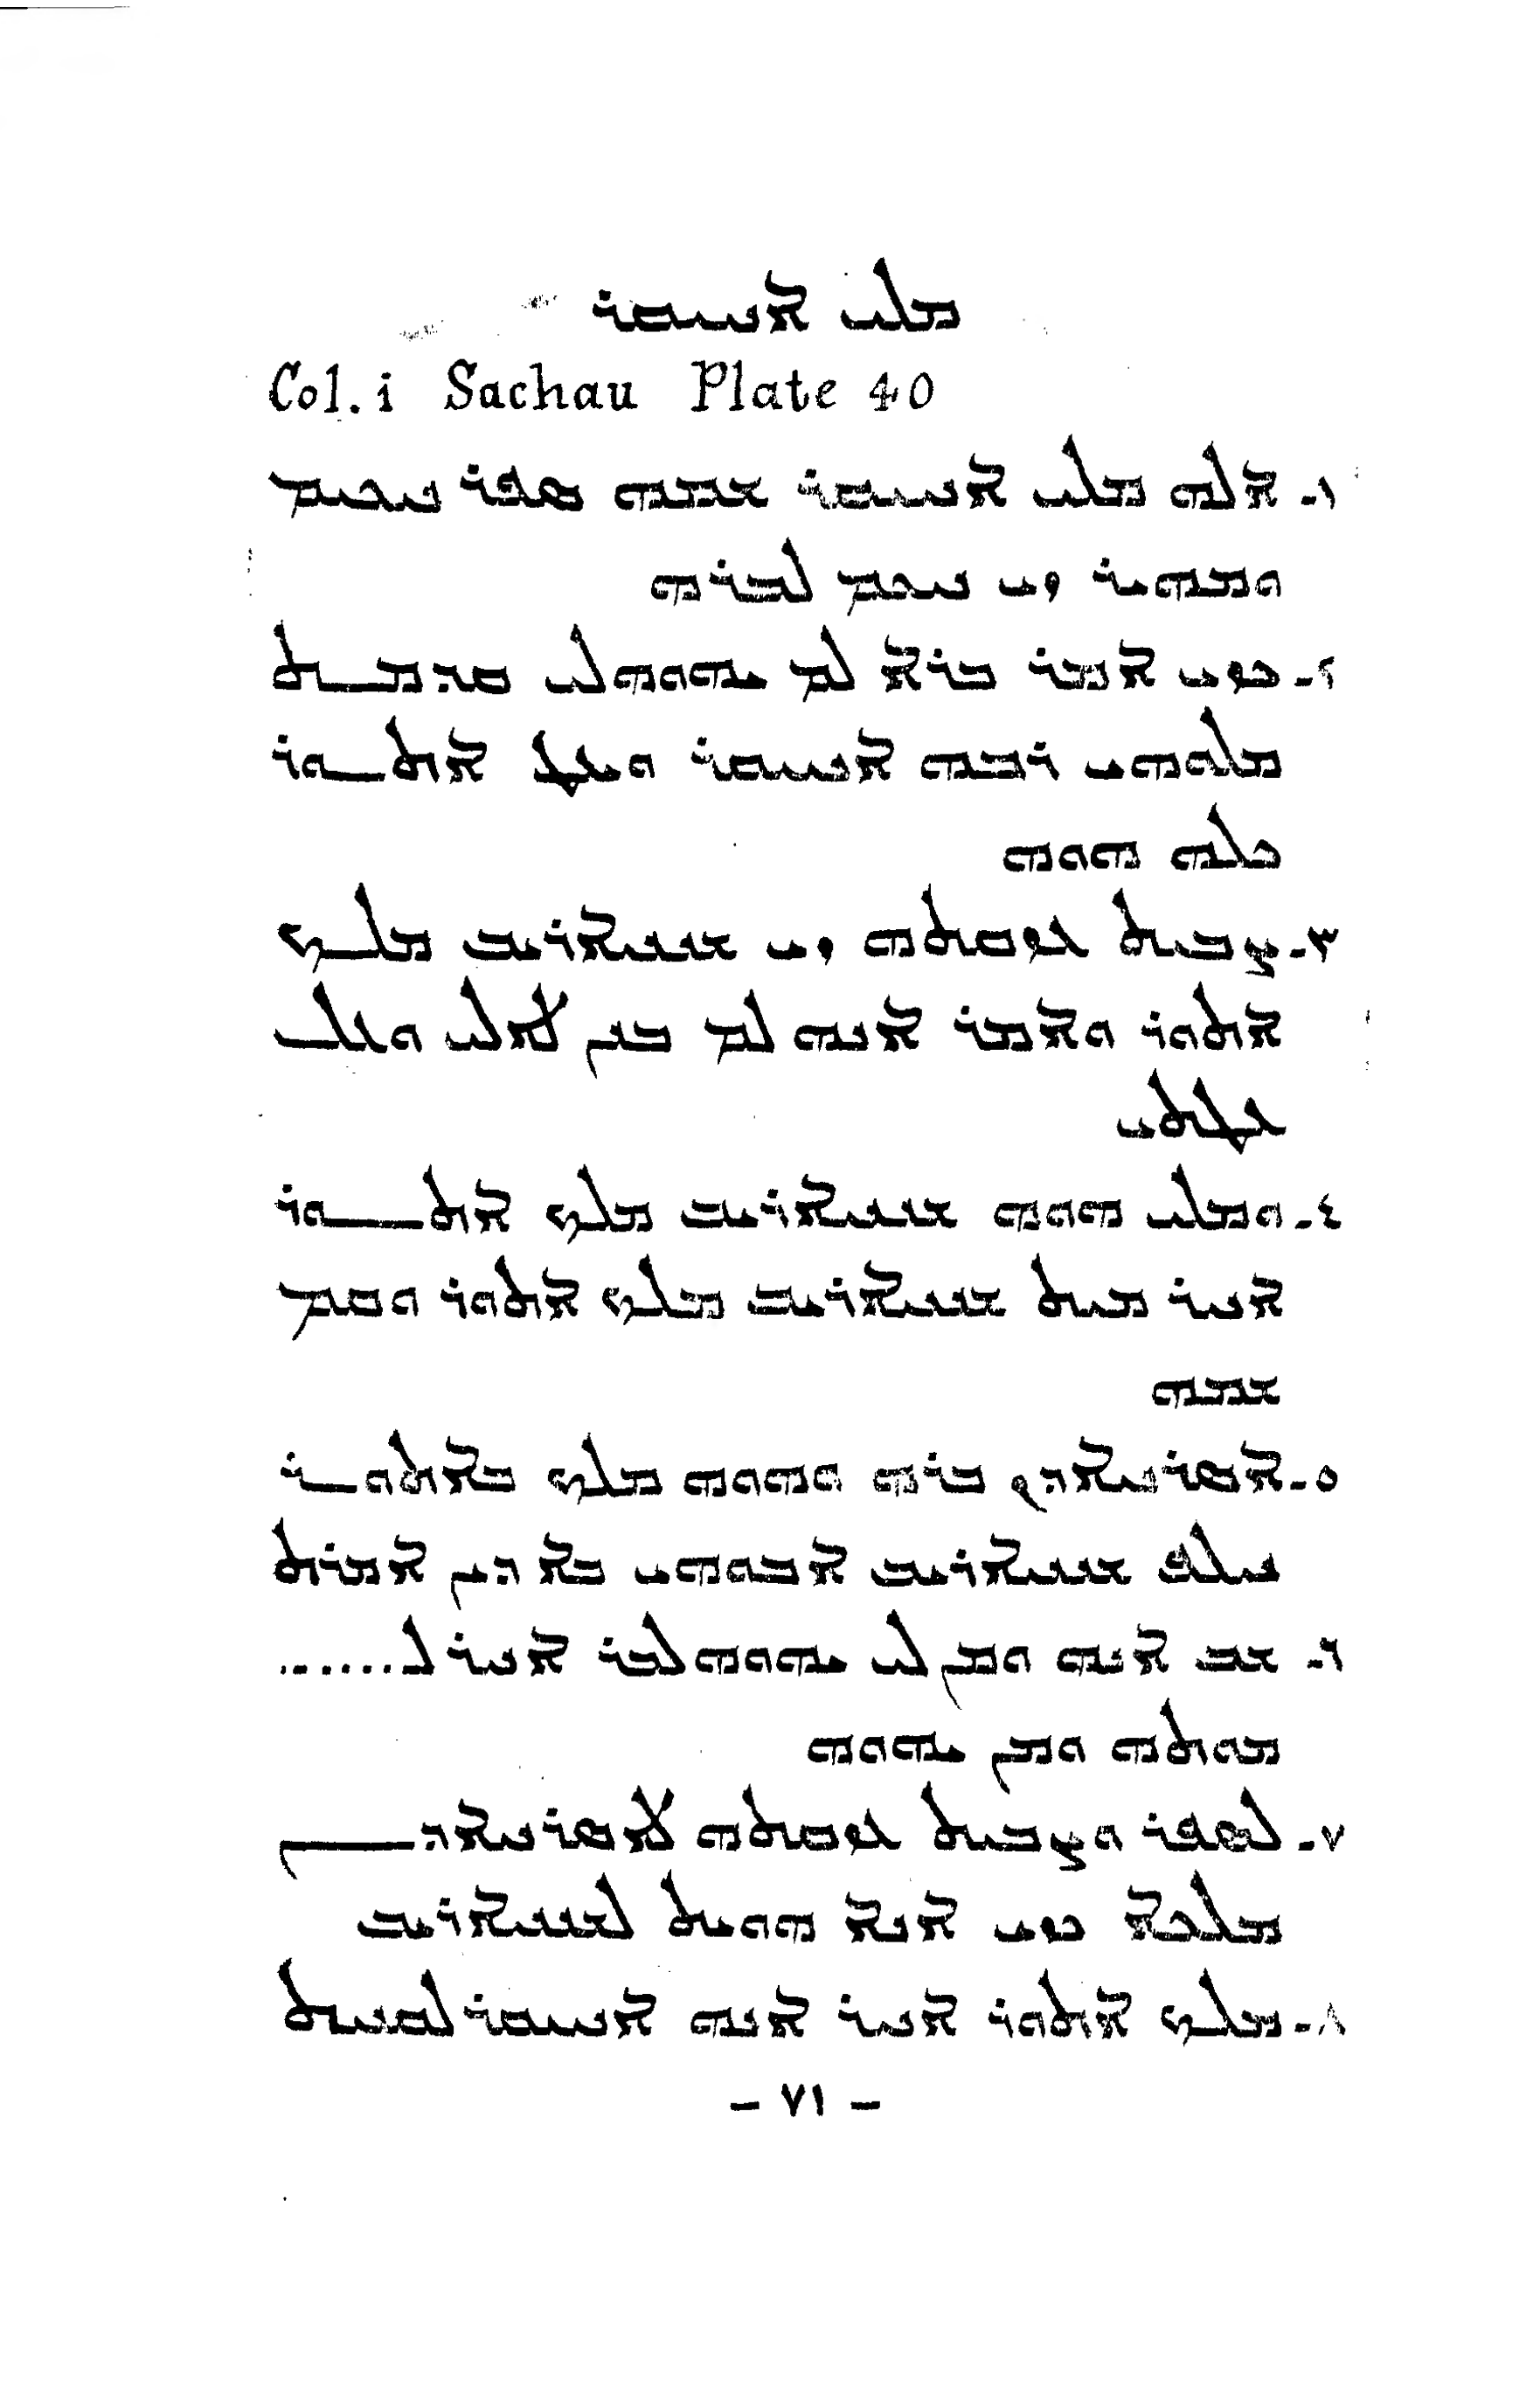 ܡܠܝ ܐܚܝܩܪ
Col. i Sachau Plate 40
١- ܐܠܗ ܡܠܝ ܐܚܝܩܪ ܫܡܗ ܣܦܪ ܚܟܝܡ
ܘܡܗܝܪ ܙܝ ܚܟܡ ܠܒܪܗ
٢- ܟܙܝ ܐܡܪ ܒܪܐ ܠܡ ܝܗܘܗ ܠܝ ܩܕܡܬ
ܡܠܘܗܝ ܪܒܗ ܐܚܝܩܪ ܘܝܥܛ ܐܬܘܪ
ܟܠܗ ܗܘܗ
٣- ܨܒܝܬ ܥܙܩܬܗ ܙܝ ܫܢܚܐܪܝܒ ܡܠܟ
ܐܬܘܪ ܘܐܡܪ ܐܢܗ ܠܡ ܒܢܢ ܠܐ ܠܝ ܘܥܠ
ܥܛܬܝ
٤- ܘܡܠܝ ܗܘܗ ܫܢܚܐܪܝܒ ܡܠܟ ܐܬܘܪ
ܐܚܪ ܡܝܬ ܫܢܚܐܪܝܒ ܡܠܟ ܐܬܘܪ ܘܩܡ
ܫܡܗ
٥- ܐܣܪܚܐܕܢ ܒܪܗ ܘܗܘܗ ܡܠܟ ܒܐܬܘܪ
ܚܠܦ ܫܢܚܐܪܝܒ ܐܒܘܗܝ ܒܐܕܝܢ ܐܡܪܬ
٦- ܫܒ ܐܢܗ ܘܡܢ ܠܝ ܝܗܘܗ ܠܒܪ ܐܚܪ ܠ......
ܡܘܬܗ ܘܡܢ ܝܗܘܗ
٧- ܠܣܦܪ ܘܨܒܝܬ ܥܙܩܬܗ ܠܐܣܪܚܐܕܢ
ܡܠܟܐ ܟܙܝ ܐܢܐ ܗܘܝܬ ܠܫܢܚܐܪܝܒ
٨- ܡܠܟ ܐܬܘܪ ܐܚܪ ܐܢܗ ܐܚܝܩܪ ܠܩܚܬ
- ٧١ -